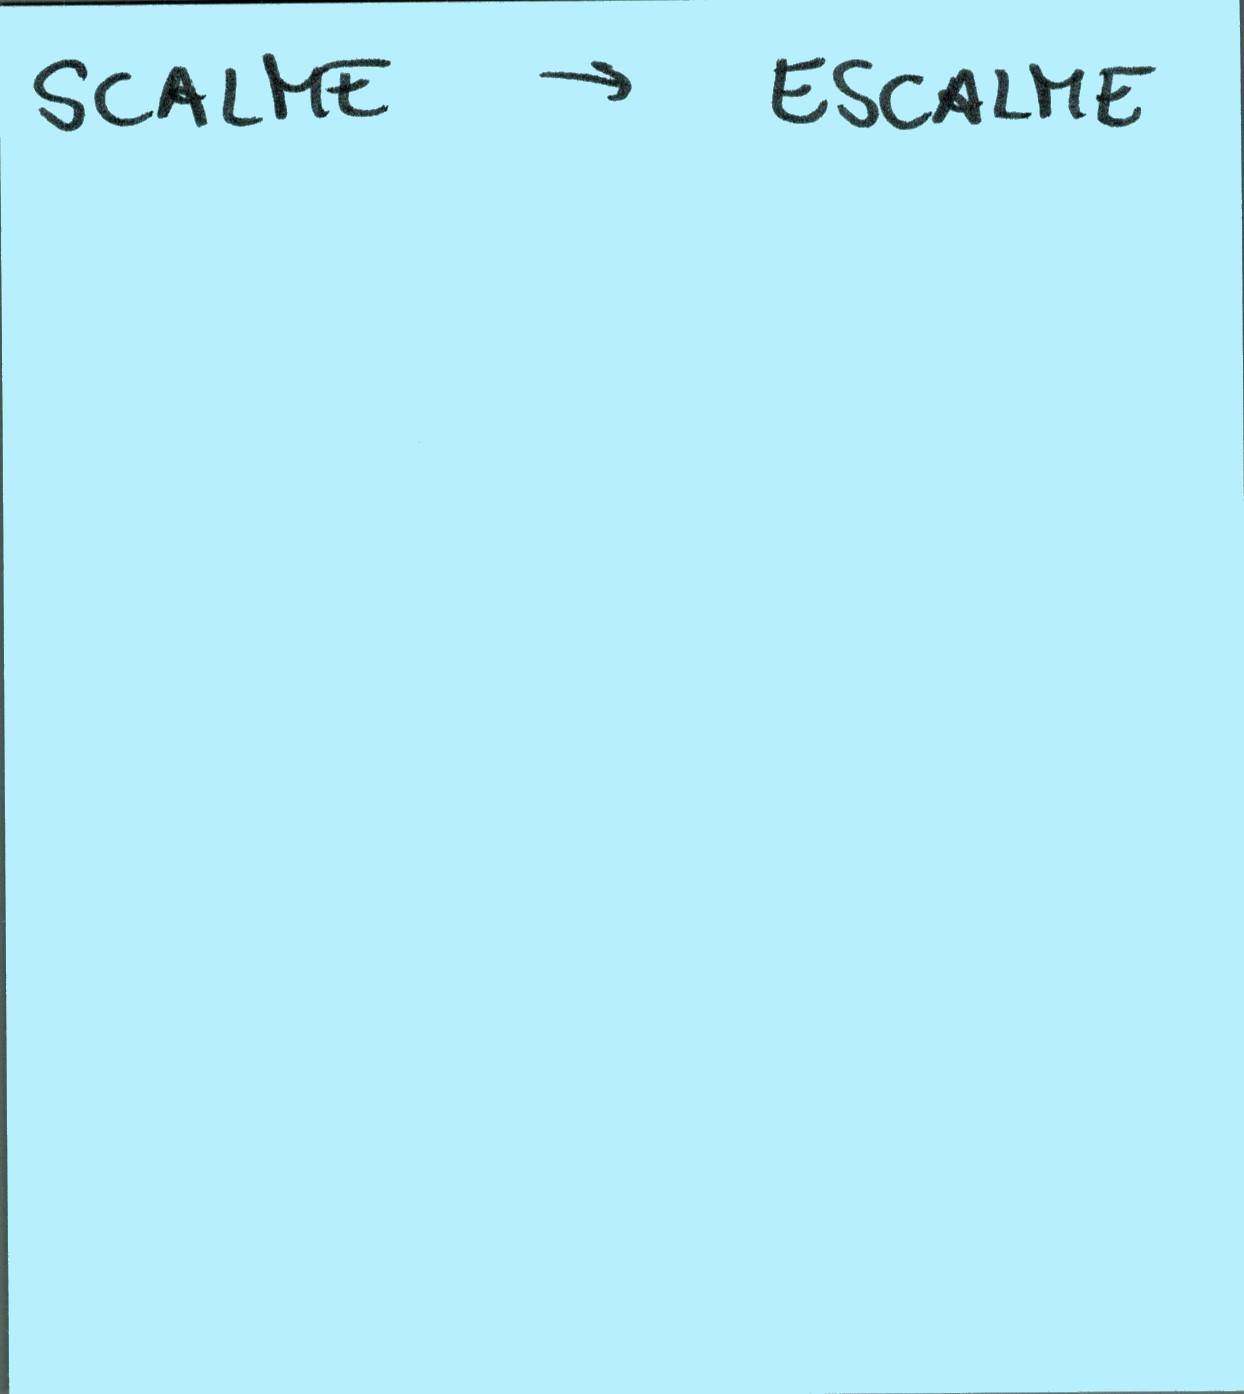 SCALME → ESCALME